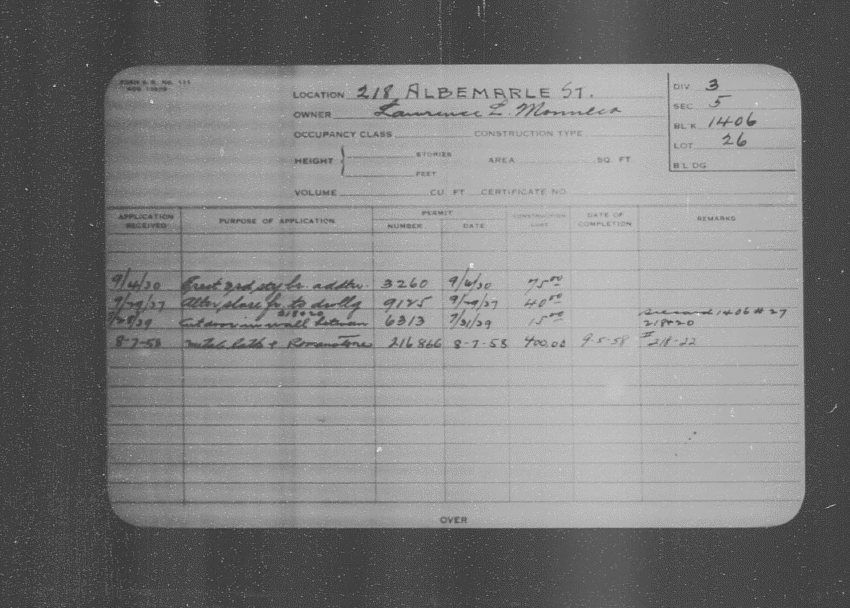 FORM B.E. NO. 111
LOCATION 218 ALBEMARLE ST.
OWNER Lawrence L.
OCCUPANCY CLASS CONSTRUCTION TYPE
HEIGHT { STORIES AREA SQ. FT
FEET
VOLUME CU. FT CERTIFICATE NO
DIV 3
SEC 5
BL'K 1406
LOT 26
BLDG
APPLICATION RECEIVED PURPOSE OF APPLICATION PERMIT NUMBER DATE CONSTRUCTION COST DATE OF COMPLETION REMARKS
9/4/30 Erect 2nd sty br. addtn. 3260 9/6/30 75.00
9/29/37 Alter store fr. to dwllg 9125 9/29/37 40.00
7/28/39 Cut door in wall between 218+20 6313 7/31/39 15.00 See card 1406 #27 218+20
8-7-58 metal lath + Romanstone 216866 8-7-58 400.00 9-5-58 218-22
OVER